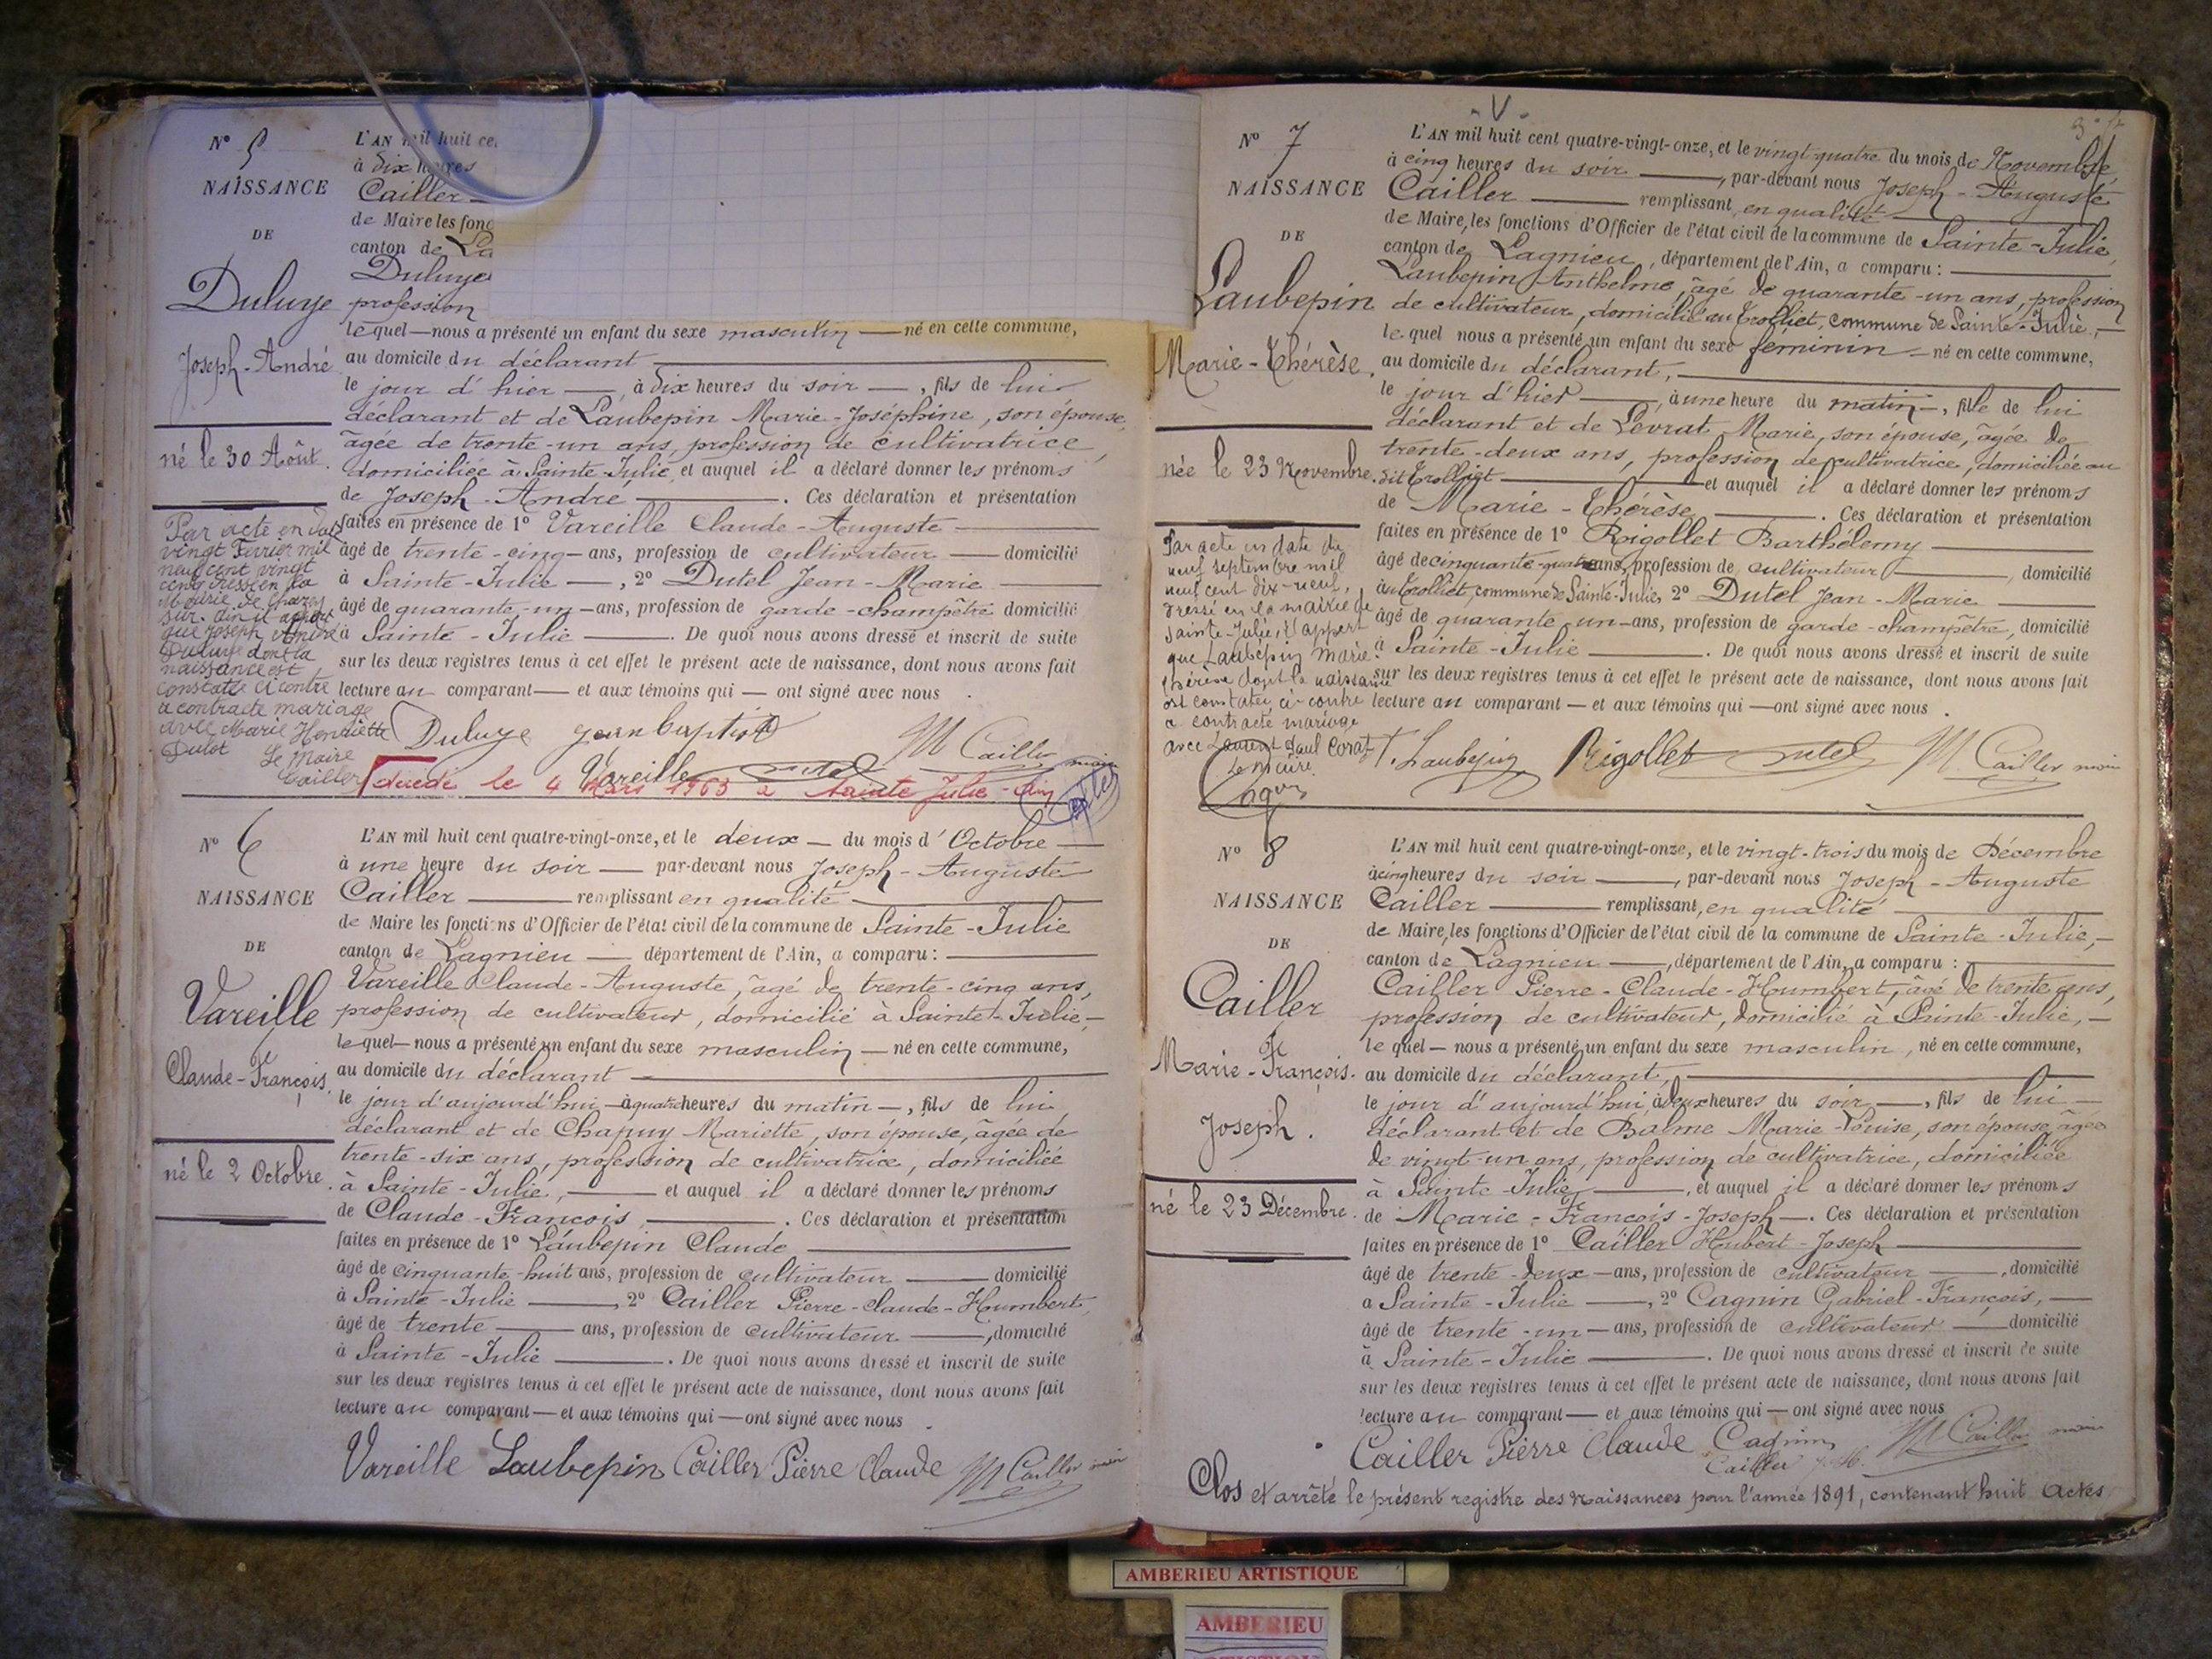 N° 5
NAISSANCE
DE
Duluye
Joseph-André
né le 30 Août.
Par acte en date
vingt Février mil
neuf cent vingt
cinq dressé en la
Mairie de Chazey
sur-Ain il appert
que Joseph André
Duluye dont la
naissance est
constatée ci contre
a contracté mariage
avec Marie Henriette
Dulot
Le Maire
Cailler
L'AN mil huit ce
à dix heures
Cailler
de Maire les fonc
canton de La
Duluye
profession
lequel — nous a présenté un enfant du sexe masculin — né en cette commune,
au domicile du déclarant
le jour d'hier —, à dix heures du soir —, fils de lui
déclarant et de Laubepin Marie-Joséphine, son épouse,
âgée de trente-un ans, profession de cultivatrice,
domiciliée à Sainte-Julie, et auquel il a déclaré donner les prénoms
de Joseph-André — . Ces déclaration et présentation
faites en présence de 1° Vareille Claude-Auguste —
âgé de trente-cinq — ans, profession de cultivateur — domicilié
à Sainte-Julie —, 2° Dutel Jean-Marie —
âgé de quarante-un — ans, profession de garde-champêtre domicilié
à Sainte-Julie — . De quoi nous avons dressé et inscrit de suite
sur les deux registres tenus à cet effet le présent acte de naissance, dont nous avons fait
lecture au comparant — et aux témoins qui — ont signé avec nous .
Duluye jean baptiste M Cailler maire
Vareille Dutel
décédé le 4 Mars 1963 à Sainte Julie - Ain
N° 6
NAISSANCE
DE
Vareille
Claude-François.
né le 2 Octobre.
L'AN mil huit cent quatre-vingt-onze, et le deux — du mois d'Octobre —
à une heure du soir — par-devant nous Joseph-Auguste
Cailler — remplissant en qualité —
de Maire les fonctions d'Officier de l'état civil de la commune de Sainte-Julie
canton de Lagnieu — département de l'Ain, a comparu : —
Vareille Claude-Auguste, âgé de trente-cinq ans,
profession de cultivateur, domicilié à Sainte-Julie, —
lequel — nous a présenté un enfant du sexe masculin — né en cette commune,
au domicile du déclarant —
le jour d'aujourd'hui — à quatre heures du matin —, fils de lui
déclarant et de Chapuy Mariette, son épouse, âgée de
trente-six ans, profession de cultivatrice, domiciliée
à Sainte-Julie, — et auquel il a déclaré donner les prénoms
de Claude-François, — . Ces déclaration et présentation
faites en présence de 1° Laubepin Claude —
âgé de cinquante-huit ans, profession de cultivateur — domicilié
à Sainte-Julie —, 2° Cailler Pierre-Claude-Humbert,
âgé de trente — ans, profession de cultivateur —, domicilié
à Sainte-Julie — . De quoi nous avons dressé et inscrit de suite
sur les deux registres tenus à cet effet le présent acte de naissance, dont nous avons fait
lecture au comparant — et aux témoins qui — ont signé avec nous .
Vareille Laubepin Cailler Pierre Claude M Cailler maire
- V -
N° 7
NAISSANCE
DE
Laubepin
Marie-Thérèse,
née le 23 Novembre.
Par acte en date du
neuf septembre mil
neuf cent dix-neuf,
dressé en la mairie de
Sainte-Julie, il appert
que Laubepin Marie-
Thérèse dont la naissance
est constatée ci-contre
a contracté mariage
avec Laurent Paul Corat
Le maire
L'AN mil huit cent quatre-vingt-onze, et le vingt-quatre du mois de Novembre,
à cinq heures du soir —, par-devant nous Joseph-Auguste
Cailler — remplissant en qualité —
de Maire, les fonctions d'Officier de l'état civil de la commune de Sainte-Julie,
canton de Lagnieu, département de l'Ain, a comparu : —
Laubepin Anthelme, âgé de quarante-un ans, profession
de cultivateur, domicilié au Trolliet, commune de Sainte-Julie, —
lequel nous a présenté un enfant du sexe féminin — né en cette commune,
au domicile du déclarant, —
le jour d'hier —, à une heure du matin —, fille de lui
déclarant et de Levrat Marie, son épouse, âgée de
trente-deux ans, profession de cultivatrice, domiciliée au
dit Trolliet — et auquel il a déclaré donner les prénoms
de Marie-Thérèse — . Ces déclaration et présentation
faites en présence de 1° Rigollet Barthélemy —
âgé de cinquante-quatre ans, profession de cultivateur —, domicilié
au Trolliet, commune de Sainte-Julie, 2° Dutel Jean-Marie —
âgé de quarante-un — ans, profession de garde-champêtre, domicilié
à Sainte-Julie — . De quoi nous avons dressé et inscrit de suite
sur les deux registres tenus à cet effet le présent acte de naissance, dont nous avons fait
lecture au comparant — et aux témoins qui — ont signé avec nous .
Laubepin Rigollet Dutel M Cailler maire
N° 8
NAISSANCE
DE
Cailler
Marie-François-
Joseph.
né le 23 Décembre.
L'AN mil huit cent quatre-vingt-onze, et le vingt-trois du mois de Décembre
à cinq heures du soir —, par-devant nous Joseph-Auguste
Cailler — remplissant, en qualité —
de Maire, les fonctions d'Officier de l'état civil de la commune de Sainte-Julie, —
canton de Lagnieu —, département de l'Ain, a comparu : —
Cailler Pierre-Claude-Humbert, âgé de trente ans,
profession de cultivateur, domicilié à Sainte-Julie, —
lequel — nous a présenté un enfant du sexe masculin, né en cette commune,
au domicile du déclarant, —
le jour d'aujourd'hui, à deux heures du soir —, fils de lui —
déclarant et de Balme Marie-Louise, son épouse, âgée
de vingt-un ans, profession de cultivatrice, domiciliée
à Sainte-Julie —, et auquel il a déclaré donner les prénoms
de Marie-François-Joseph — . Ces déclaration et présentation
faites en présence de 1° Cailler Hubert-Joseph —
âgé de trente-deux — ans, profession de cultivateur —, domicilié
à Sainte-Julie —, 2° Cagnin Gabriel-François, —
âgé de trente-un — ans, profession de cultivateur — domicilié
à Sainte-Julie — . De quoi nous avons dressé et inscrit de suite
sur les deux registres tenus à cet effet le présent acte de naissance, dont nous avons fait
lecture au comparant — et aux témoins qui — ont signé avec nous
Cailler Pierre Claude Cagnin M Cailler maire
Cailler
Clos et arrêté le présent registre des naissances pour l'année 1891, contenant huit actes
AMBERIEU ARTISTIQUE
AMBERIEU